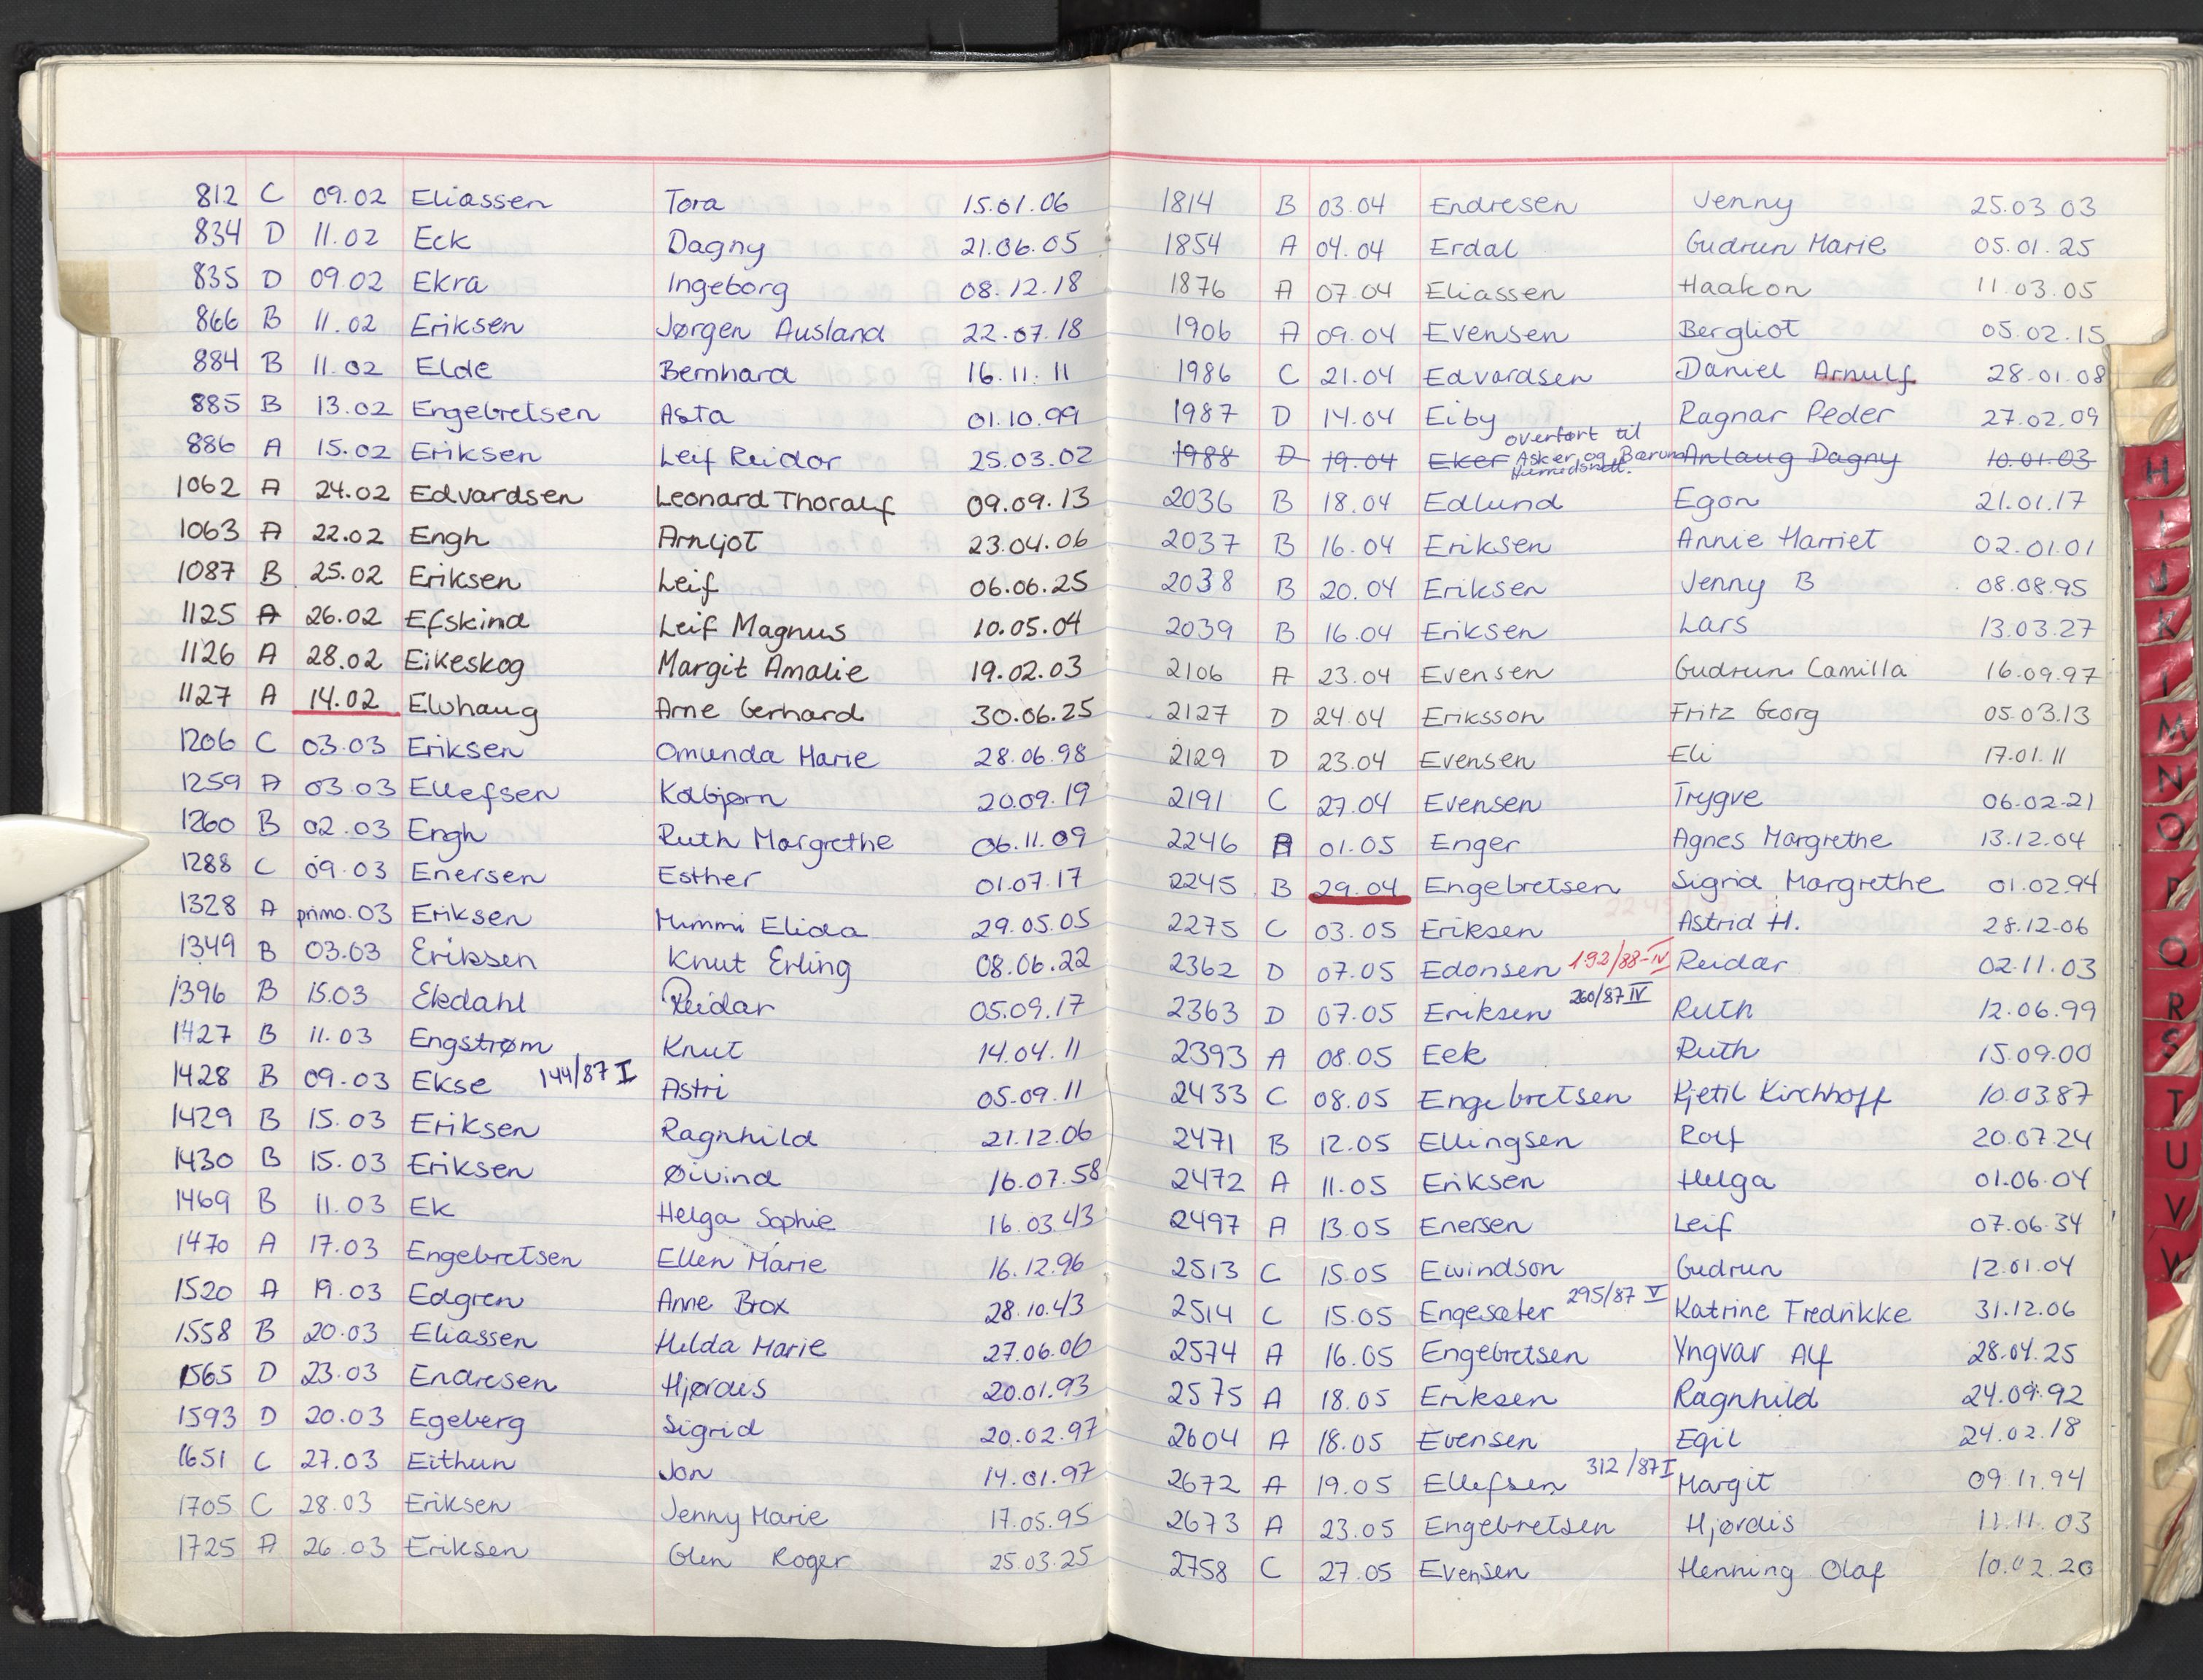 812 C 09.02 Eliassen Tora 15.01.06
834 D 11.02 Eck Dagny 21.06.05
835 D 09.02 Ekra Ingeborg 08.12.18
866 B 11.02 Eriksen Jørgen Ausland 22.07.18
884 B 11.02 Elde Bernhard 16.11.11
885 B 13.02 Engebretsen Asta 01.10.99
886 A 15.02 Eriksen Leif Reidar 25.03.02
1062 A 24.02 Edvardsen Leonard Thoralf 09.09.13
1063 A 22.02 Engh Arnljot 23.04.06
1087 B 25.02 Eriksen Leif 06.06.25
1125 A 26.02 Efskind Leif Magnus 10.05.04
1126 A 28.02 Eikeskog Margit Amalie 19.02.03
1127 A 14.02 Elvhaug Arne Gerhard 30.06.25
1206 C 03.03 Eriksen Omunda Marie 28.06.98
1259 A 03.03 Ellefsen Kolbjørn 20.09.19
1260 B 02.03 Engh Ruth Margrethe 06.11.09
1288 C 09.03 Enersen Esther 01.07.17
1328 A primo.03 Eriksen Mimmi Elida 29.05.05
1349 B 03.03 Eriksen Knut Erling 08.06.22
1396 B 15.03 Ekedahl Reidar 05.09.17
1427 B 11.03 Engstrøm Knut 14.04.11
1428 B 09.03 Ekse 144/87 I Astri 05.09.11
1429 B 15.03 Eriksen Ragnhild 21.12.06
1430 B 15.03 Eriksen Øivind 16.07.58
1469 B 11.03 Ek Helga Sophie 16.03.43
1470 A 17.03 Engebretsen Ellen Marie 16.12.96
1520 A 19.03 Edgren Anne Brox 28.10.43
1558 B 20.03 Eliassen Hilda Marie 27.06.06
1565 D 23.03 Endresen Hjørdis 20.01.93
1593 D 20.03 Egeberg Sigrid 20.02.97
1651 C 27.03 Eithun Jon 14.01.97
1705 C 28.03 Eriksen Jenny Marie 17.05.95
1725 A 26.03 Eriksen Glen Roger 25.03.25
1814 B 03.04 Endresen Jenny 25.03.03
1854 A 04.04 Erdal Gudrun Marie 05.01.25
1876 A 07.04 Eliassen Haakon 11.03.05
1906 A 09.04 Evensen Bergliot 05.02.15
1986 C 21.04 Edvardsen Daniel Arnulf 28.01.08
1987 D 14.04 Eiby Ragnar Peder 27.02.09
overført til
1988 D 19.04 Eker Asker og Bærum Anlaug Dagny 10.01.03
2036 B 18.04 Edlund Egon 21.01.17
2037 B 16.04 Eriksen Annie Harriet 02.01.01
2038 B 20.04 Eriksen Jenny B 08.08.95
2039 B 16.04 Eriksen Lars 13.03.27
2106 A 23.04 Evensen Gudrun Camilla 16.09.97
2127 D 24.04 Eriksson Fritz Georg 05.03.13
2129 D 23.04 Evensen Eli 17.01.11
2191 C 27.04 Evensen Trygve 06.02.21
2246 A 01.05 Enger Agnes Margrethe 13.12.04
2245 B 29.04 Engebretsen Sigrid Margrethe 01.02.94
2275 C 03.05 Eriksen Astrid H. 28.12.06
2362 D 07.05 Edonsen 192/88-IV Reidar 02.11.03
2363 D 07.05 Eriksen 260/87 IV Ruth 12.06.99
2393 A 08.05 Eek Ruth 15.09.00
2433 C 08.05 Engebretsen Kjetil Kirchhoff 10.03.87
2471 B 12.05 Ellingsen Rolf 20.07.24
2472 A 11.05 Eriksen Helga 01.06.04
2497 A 13.05 Enersen Leif 07.06.34
2513 C 15.05 Eivindson Gudrun 12.01.04
2514 C 15.05 Engesæter 295/87 V Katrine Fredrikke 31.12.06
2574 A 16.05 Engebretsen Yngvar Alf 28.04.25
2575 A 18.05 Eriksen Ragnhild 24.09.92
2604 A 18.05 Evensen Egil 24.02.18
2672 A 19.05 Ellefsen 312/87 I Margit 09.11.94
2673 A 23.05 Engebretsen Hjørdis 11.11.03
2758 C 27.05 Evensen Henning Olaf 10.02.20
H
I
J
K
L
M
N
O
P
Q
R
S
T
U
V
W